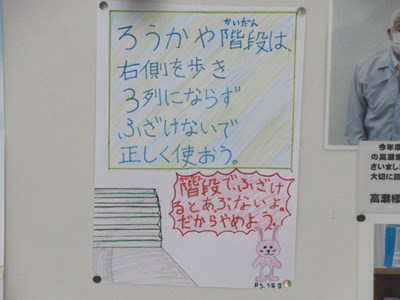 かいだん
ろうかや階段は、
右側を歩き
3列にならず
ふざけないで
正しく使おう。
階段でふざけ
るとあぶないよ。
だからやめよう。
今年度
の高瀬
さいまし
大切に
高瀬様